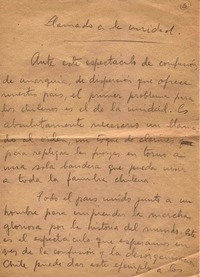 Llamado a la unidad
Ante este espectaculo de confusión
de anarquia, de dispersión que ofrece
nuestro país, el primer problema para
los chilenos es el de la unidad. Es
absolutamente necesario un llama-
do al orden, un toque de
para replegar las fuerzas en torno a
una sola bandera que pueda unir
a toda la familia chilena.
Todo el pais unido junto a un
hombre para emprender la marcha
gloriosa por la historia del mundo.
es el espectáculo que esperamos en
vez de la confusión y la desorganización
Chile puede dar este ejemplo a los